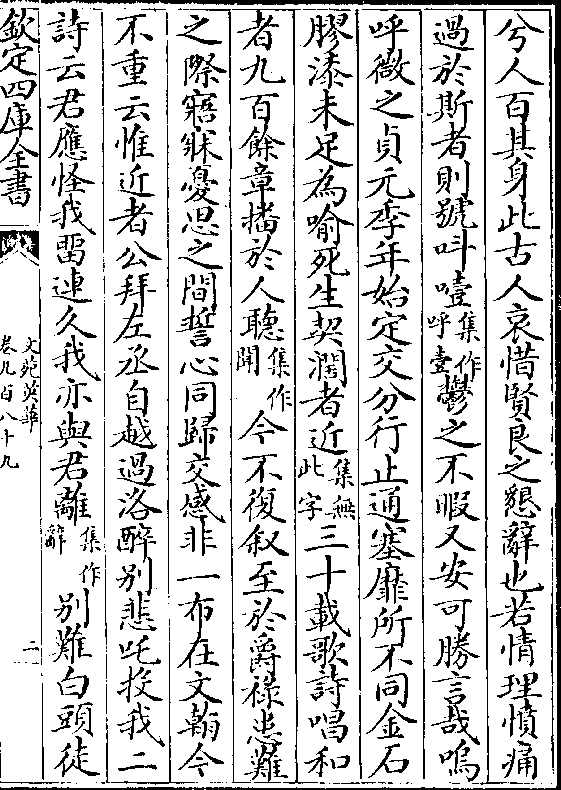 兮人百其身此古人哀惜賢良之懇辭也若情理憤痛
過於斯者則號呌噎集作呼壹鬱之不暇又安可勝言哉嗚
呼微之貞元季年始定交分行止通塞靡所不同金石
膠漆未足為喻死生契濶者近集無此字三十載歌詩唱和
者九百餘章播於人聽集作聞今不復叙至於爵祿患難
之際寤寐憂思之間誓心同歸交感非一布在文翰今
不重云惟近者公拜左丞自越過洛醉別悲吒投我二
詩云君應怪我畱連久我亦與君離集作辭別難白頭徒
欽定四庫全書
文苑英華
卷九百八十九
二